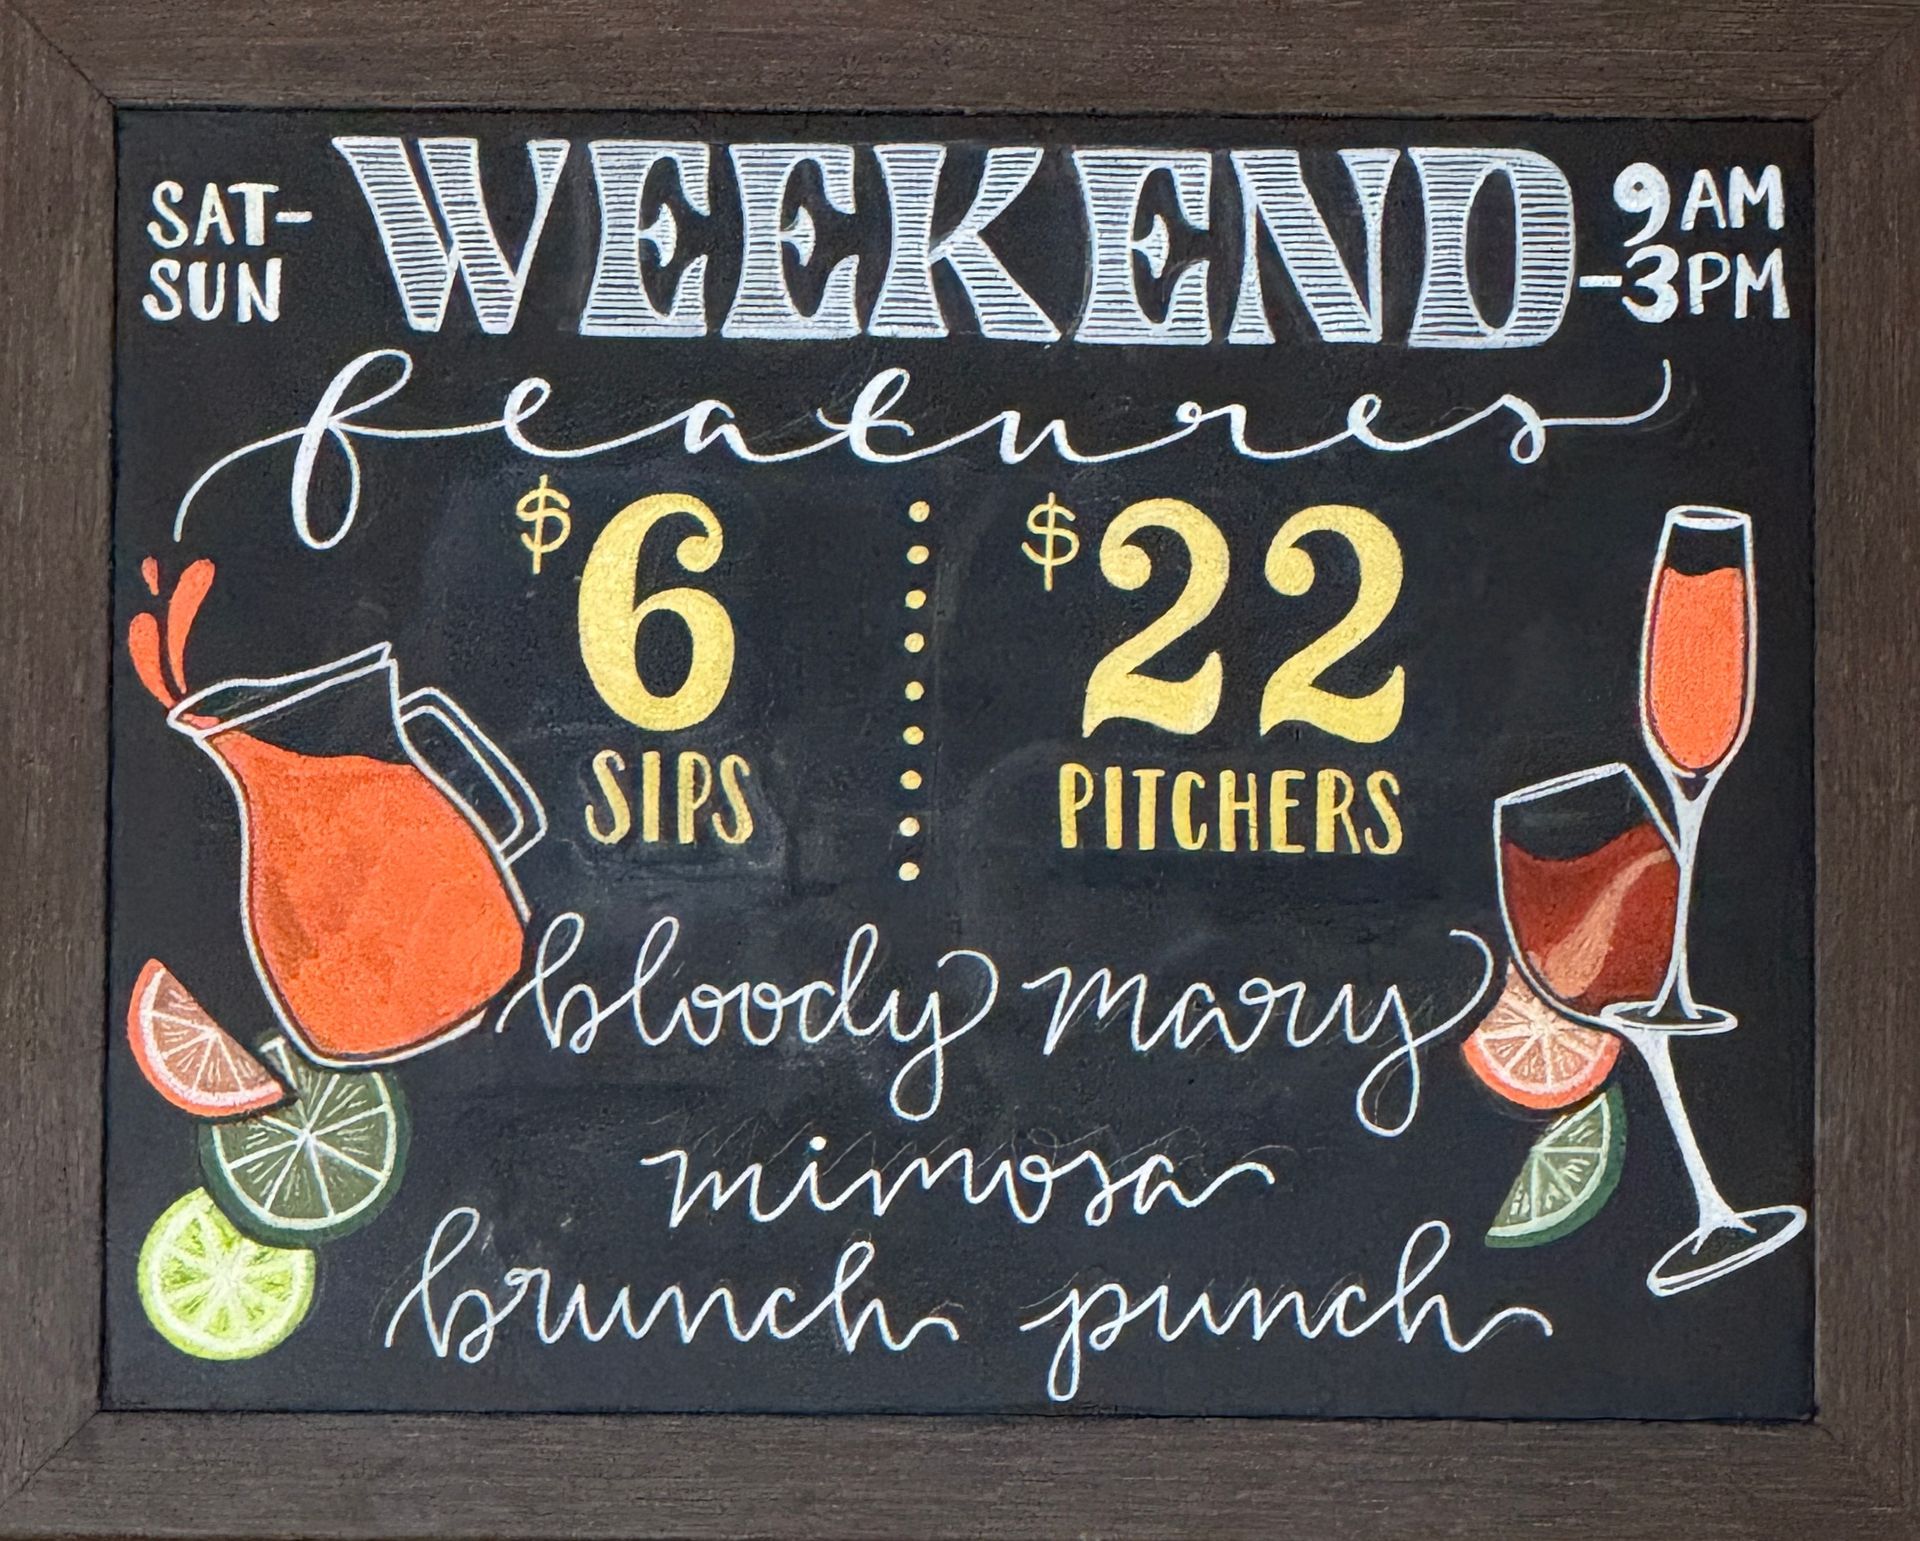 SAT-
SUN
WEEKEND
9AM
-3PM
features
$6
SIPS
$22
PITCHERS
bloody mary
mimosa
brunch punch